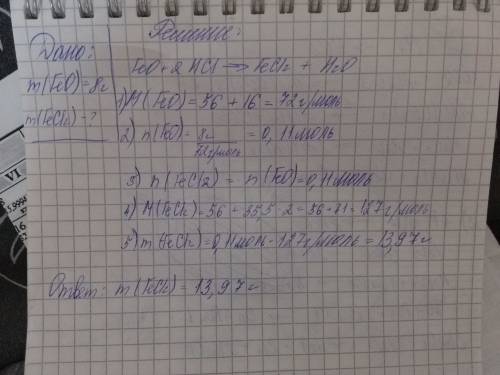 Решение:
Дано:
m(FeO)=8г
m(FeCl2)-?
FeO+2HCl→FeCl2+H2O
1) M(FeO)=56+16=72г/моль
2) n(FeO)=8г/72г/моль=0,11моль
3) n(FeCl2)=n(FeO)=0,11моль
4) M(FeCl2)=56+35,5·2=56+71=127г/моль
5) m(FeCl2)=0,11моль·127г/моль=13,97г
Ответ: m(FeCl2)=13,97г
VI
16